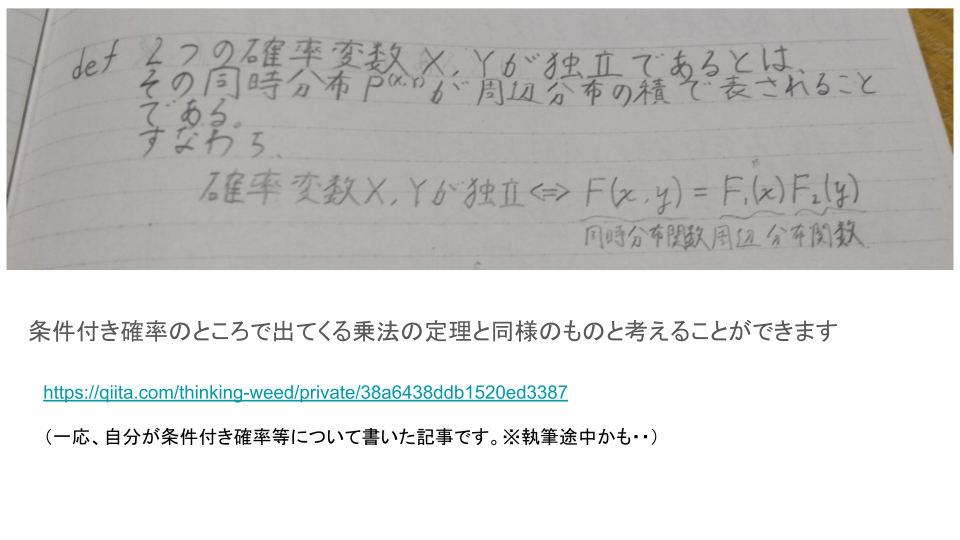 def 2つの確率変数 X, Yが独立であるとは、
その同時分布P(X,Y)が周辺分布の積で表されること
である。
すなわち、
確率変数X, Yが独立⇔ F(x, y) = F₁(x)F₂(y)
同時分布関数 周辺分布関数
条件付き確率のところで出てくる乗法の定理と同様のものと考えることができます
https://qiita.com/thinking-weed/private/38a6438ddb1520ed3387
（一応、自分が条件付き確率等について書いた記事です。※執筆途中かも・・）